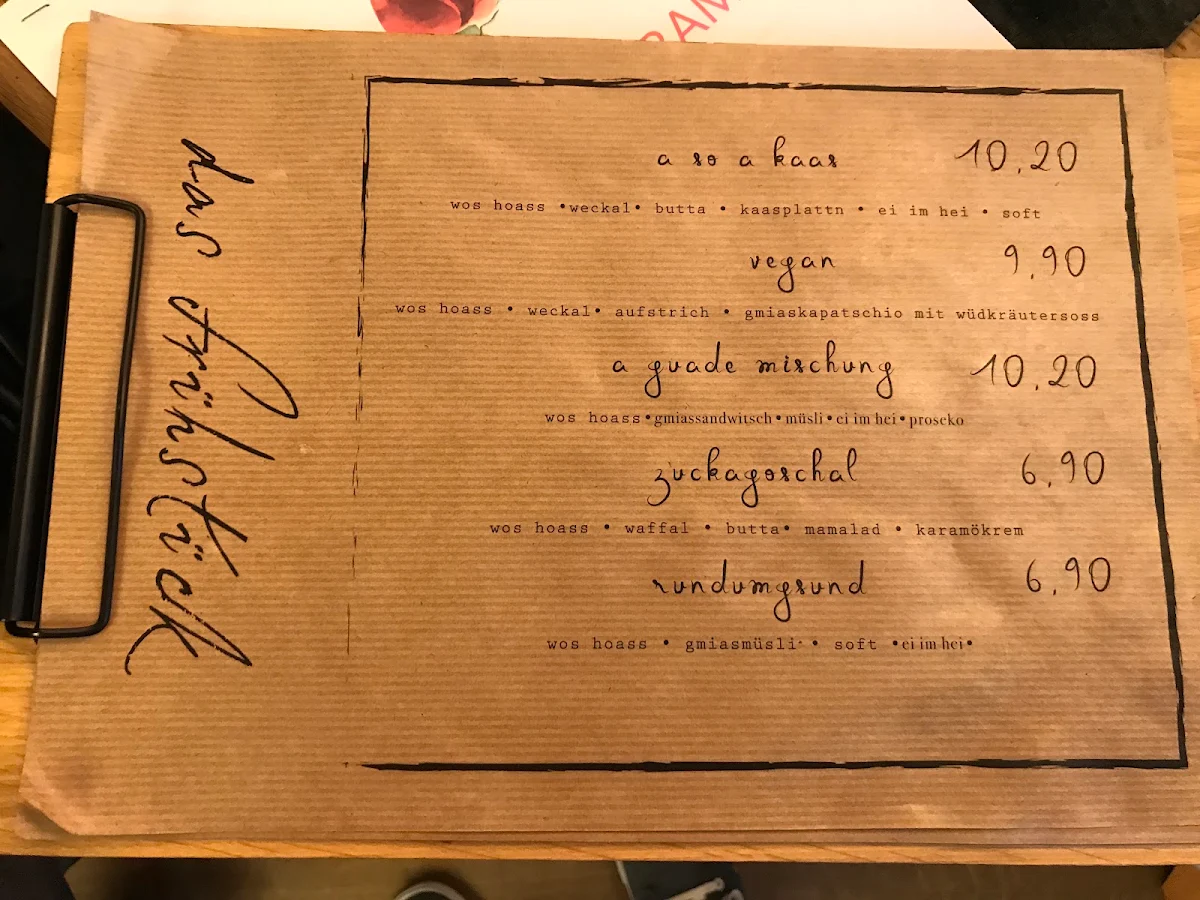 RAM
das frühstück
a so a kaas 10,20
wos hoass • weckal • butta • kaasplattn • ei im hei • soft
vegan 9,90
wos hoass • weckal • aufstrich • gmiaskapatschio mit wüdkräutersoss
a guade mischung 10,20
wos hoass • gmiassandwitsch • müsli • ei im hei • proseko
zuckagoschal 6,90
wos hoass • waffal • butta • mamalad • karamökrem
rundumgsund 6,90
wos hoass • gmiasmüsli • soft • ei im hei •